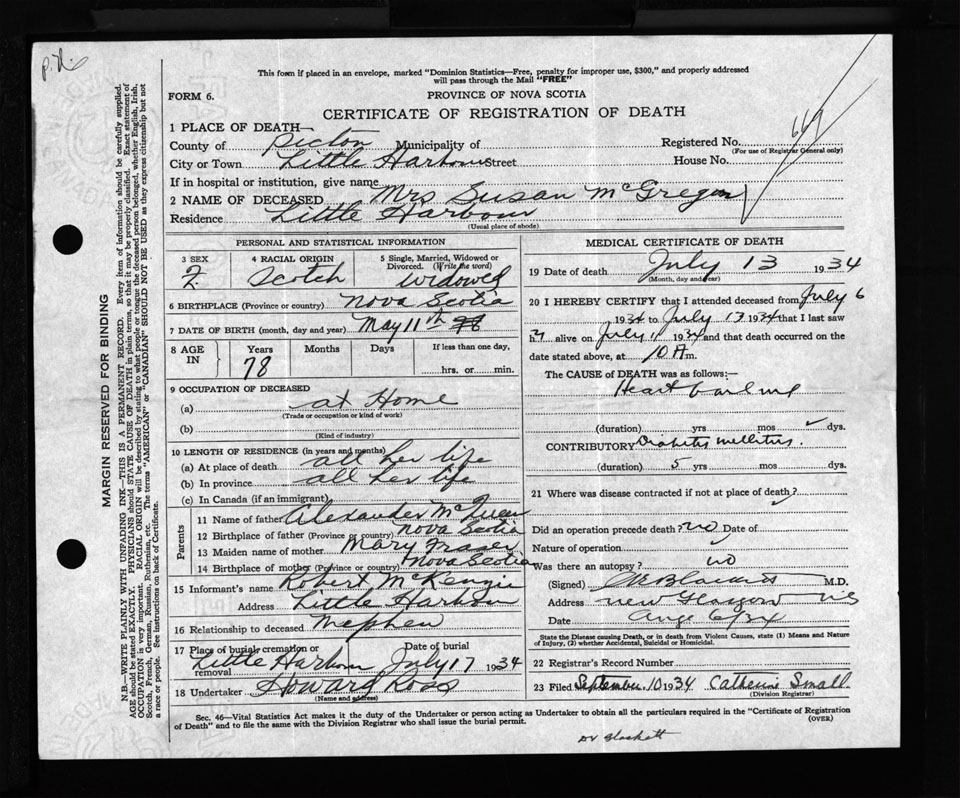 P.N.
This form if placed in an envelope, marked "Dominion Statistics—Free, penalty for improper use, $300," and properly addressed
will pass through the Mail "FREE"
FORM 6.
PROVINCE OF NOVA SCOTIA
CERTIFICATE OF REGISTRATION OF DEATH
1 PLACE OF DEATH—
County of Picton Municipality of
Registered No. 669
(For use of Registrar General only)
City or Town Little Harbour Street
House No.
If in hospital or institution, give name
2 NAME OF DECEASED Mrs Susan McGregor
Residence Little Harbour
(Usual place of abode)
MARGIN RESERVED FOR BINDING
N.B.—WRITE PLAINLY WITH UNFADING INK—THIS IS A PERMANENT RECORD. Every item of information should be carefully supplied.
AGE should be stated EXACTLY. PHYSICIANS should STATE CAUSE OF DEATH in plain terms, so that it may be properly classified. Exact statement of
OCCUPATION is very important. RACIAL ORIGIN will be described by stating to what people or tongue the deceased person belonged, whether English, Irish,
Scotch, French, German, Russian, Ruthenian, etc. The terms "AMERICAN" or "CANADIAN" SHOULD NOT BE USED as they express citizenship but not
a race or people. See instructions on back of Certificate.
PERSONAL AND STATISTICAL INFORMATION
3 SEX
F.
4 RACIAL ORIGIN
Scotch
5 Single, Married, Widowed or
Divorced. (Write the word)
widowed
6 BIRTHPLACE (Province or country) Nova Scotia
7 DATE OF BIRTH (month, day and year) May 11th
8 AGE
IN
Years
Months
Days
If less than one day,
78
hrs. or min.
9 OCCUPATION OF DECEASED
(a) at Home
(Trade or occupation or kind of work)
(b)
(Kind of industry)
10 LENGTH OF RESIDENCE (in years and months)
(a) At place of death all her life
(b) In province all her life
(c) In Canada (if an immigrant)
Parents
11 Name of father Alexander McQueen
12 Birthplace of father (Province or country) Nova Scotia
13 Maiden name of mother Mary Fraser
14 Birthplace of mother (Province or country) Nova Scotia
15 Informant's name Robert McKenzie
Address Little Harbour
16 Relationship to deceased Nephew
17 Place of burial, cremation or removal Little Harbour Date of burial July 17 1934
18 Undertaker Howard Ross
(Name and address)
MEDICAL CERTIFICATE OF DEATH
19 Date of death July 13 1934
(Month, day and year)
20 I HEREBY CERTIFY that I attended deceased from July 6
1934 to July 13 1934 that I last saw
her alive on July 11 1934 and that death occurred on the
date stated above, at 10 A m.
The CAUSE of DEATH was as follows:
Heart failure
(duration) yrs mos dys.
CONTRIBUTORY Diabetes mellitus.
(duration) 5 yrs mos dys.
21 Where was disease contracted if not at place of death?
Did an operation precede death? no Date of
Nature of operation
Was there an autopsy? no
(Signed) M.D.
Address New Glasgow NS
Date Aug 6/34
State the Disease causing Death, or in death from Violent Causes, state (1) Means and Nature
of Injury, (2) whether Accidental, Suicidal or Homicidal.
22 Registrar's Record Number
23 Filed September 10 1934 Catherine Small
(Division Registrar)
Sec. 46—Vital Statistics Act makes it the duty of the Undertaker or person acting as Undertaker to obtain all the particulars required in the "Certificate of Registration
of Death" and to file the same with the Division Registrar who shall issue the burial permit.
(OVER)
Dr Blackett